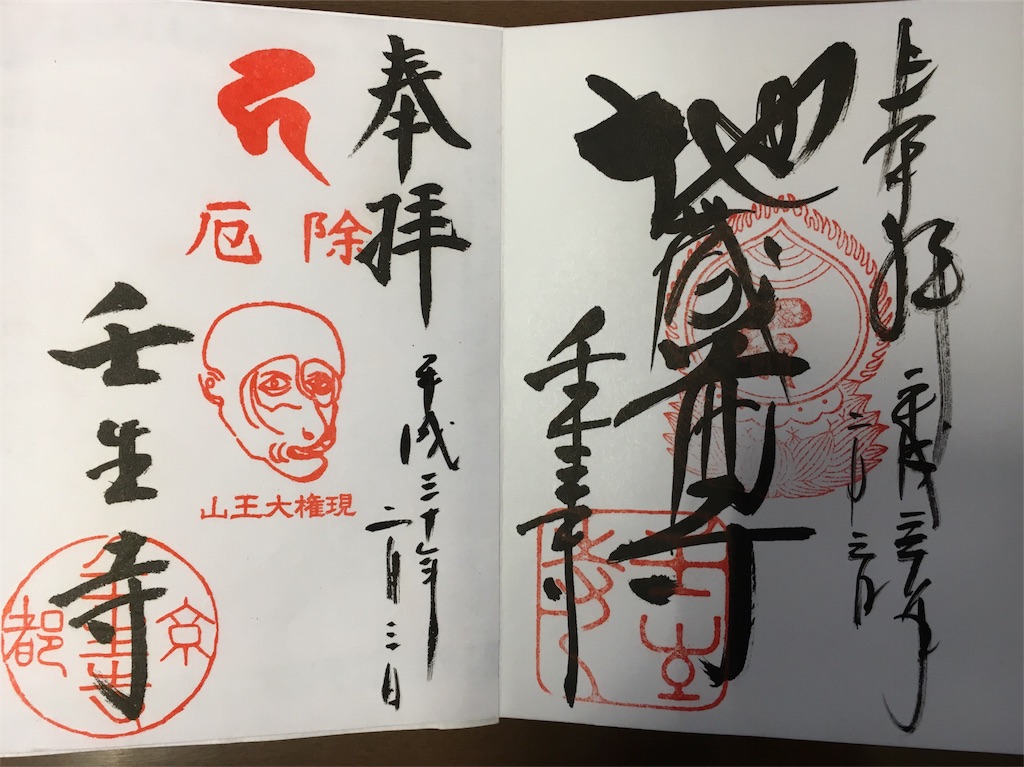 奉拝
平成三十年
二月三日
地蔵尊
壬生寺
奉拝
平成三十年
二月三日
厄除
山王大権現
壬生寺
京都
壬生寺